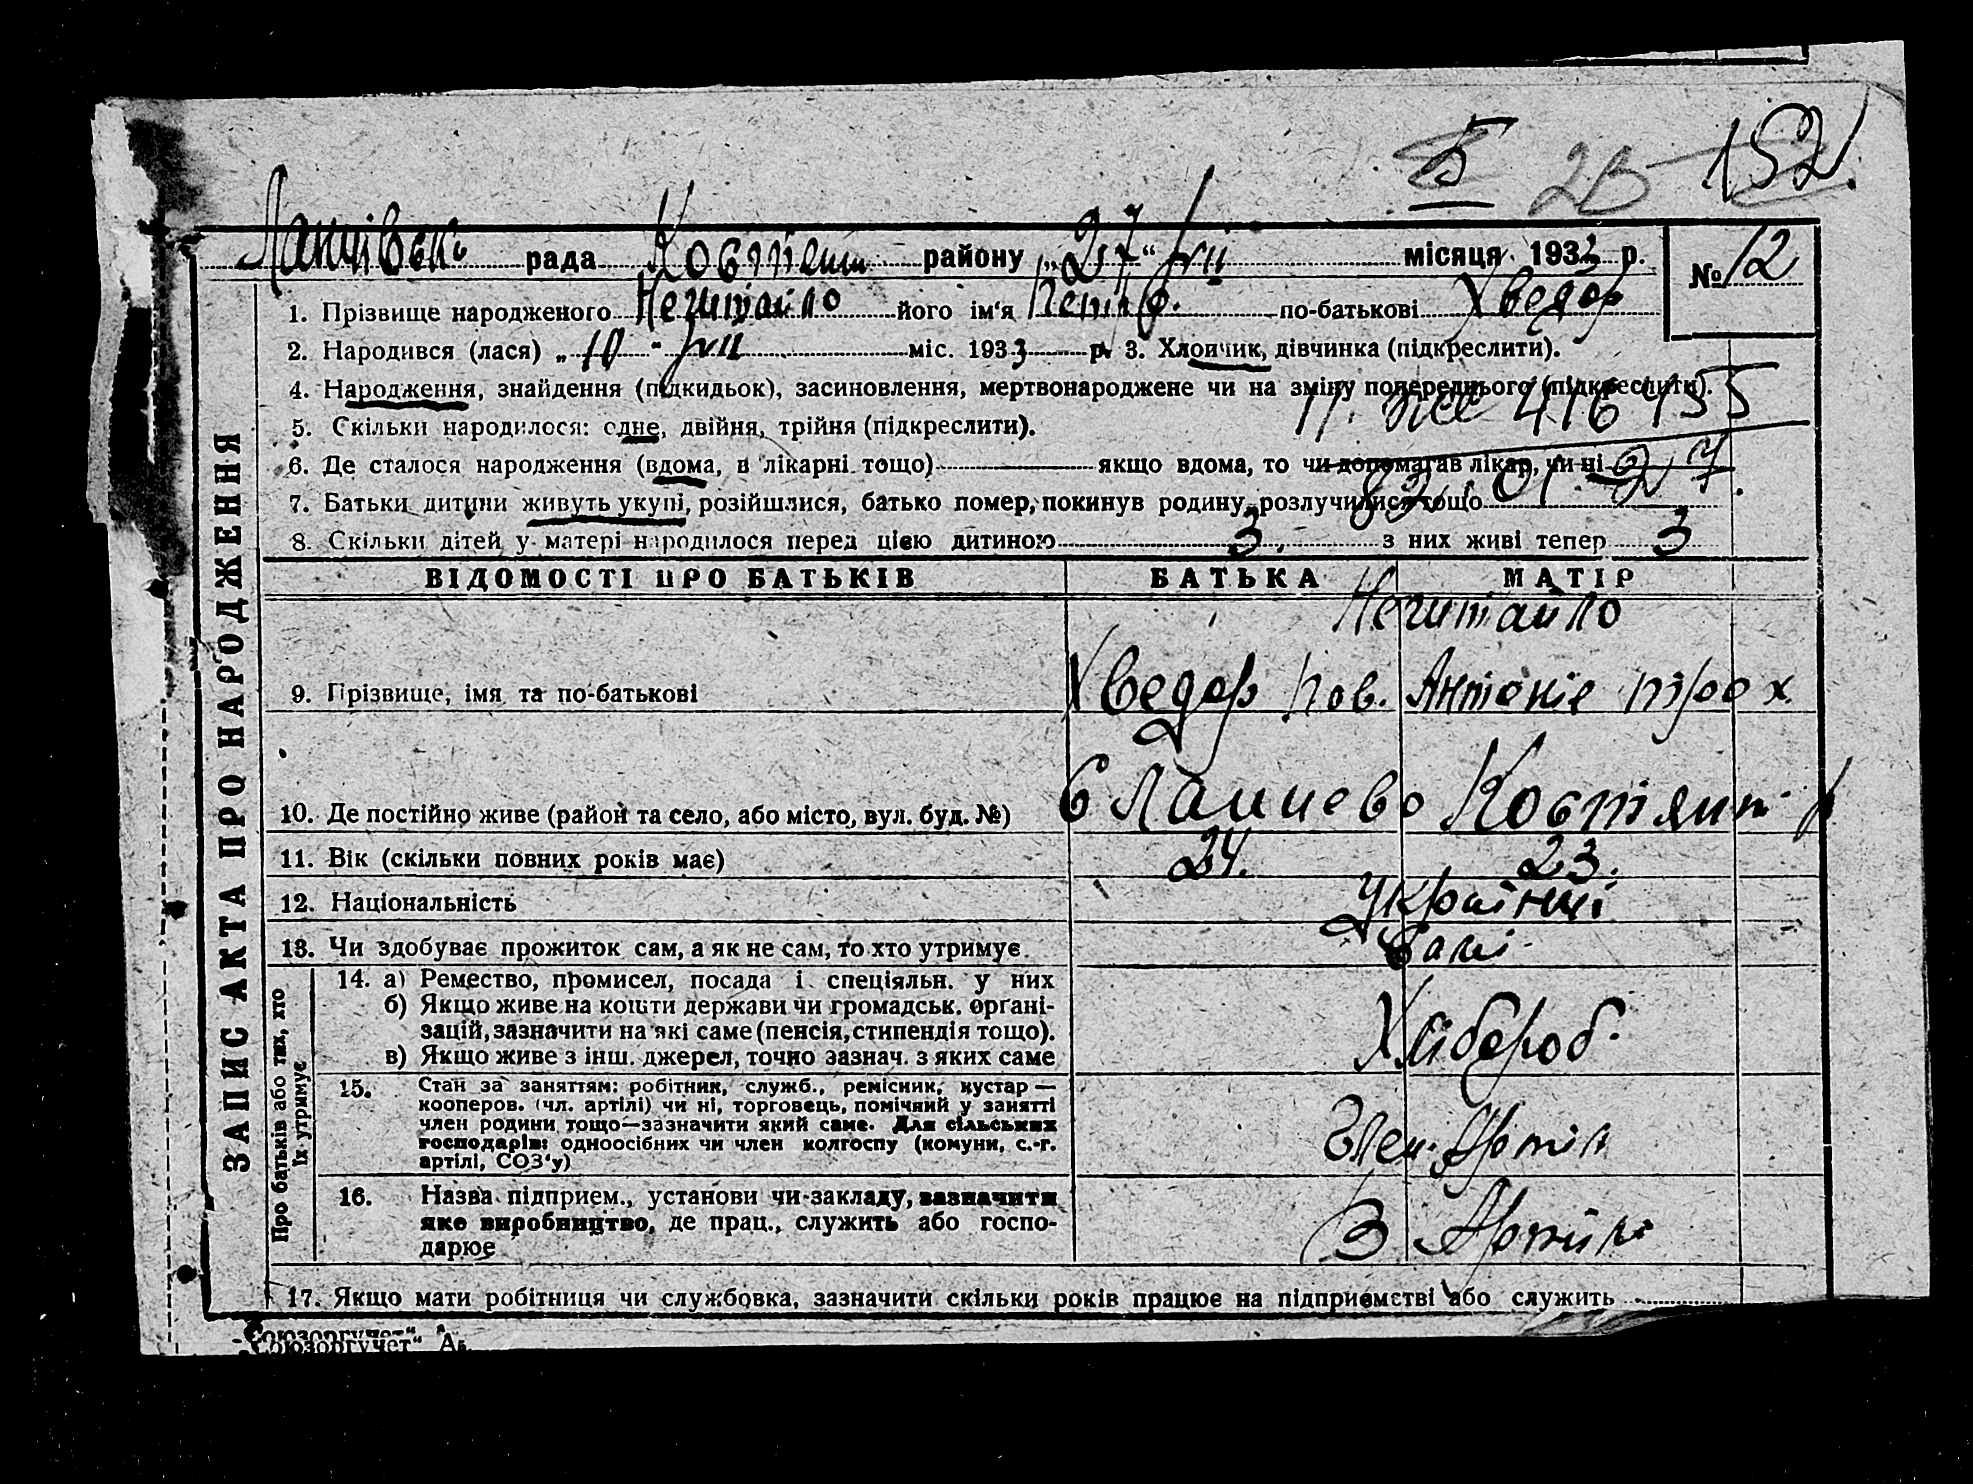 Б 2В 152
Ланнівськ. рада Костянт. району „27“ VII місяця 1933 р. № 12
1. Прізвище народженого Нечитайло його ім'я Петро. по-батькові Хведор
2. Народився (лася) „10“ VII міс. 1933 р. 3. Хлопчик, дівчинка (підкреслити).
4. Народження, знайдення (підкидьок), засиновлення, мертвонароджене чи на зміну попереднього (підкреслити).
416455
5. Скільки народилося: одне, двійня, трійня (підкреслити).
6. Де сталося народження (вдома, в лікарні тощо) якщо вдома, то чи допомагав лікар, чи ні
7. Батьки дитини живуть укупі, розійшлися, батько помер, покинув родину, розлучилися тощо
8. Скільки дітей у матері народилося перед цією дитиною 3. з них живі тепер 3
ВІДОМОСТІ ПРО БАТЬКІВ БАТЬКА МАТІР
Нечитайло
9. Прізвище, імя та по-батькові Хведор Пов. Антоніе трох.
10. Де постійно живе (район та село, або місто, вул. буд. №) с Костянт. р
11. Вік (скільки повних років має) 24. 23.
12. Національність Українці
13. Чи здобуває прожиток сам, а як не сам, то хто утримує Самі
14. а) Ремество, промисел, посада і спеціяльн. у них
б) Якщо живе на кошти держави чи громадськ. органі-
зацій, зазначити на які саме (пенсія, стипендія тощо).
в) Якщо живе з інш. джерел, точно зазнач. з яких саме
Хлібороб.
15. Стан за заняттям: робітник, служб., ремісник, кустар —
кооперов. (чл. артілі) чи ні, торговець, помічний у занятті
член родини тощо—зазначити який саме. Для сільських
господарів: одноосібних чи член колгоспу (комуни, с.-г.
артілі, СОЗ'у)
Член. Артіл
16. Назва підприєм., установи чи закладу, зазначити
яке виробництво, де прац., служить або госпо-
дарює
В Артілі
17. Якщо мати робітниця чи службовка, зазначити скільки років працює на підприємстві або служить
ЗАПИС АКТА ПРО НАРОДЖЕННЯ
Про батьків або тих, хто
їх утримує
„Союзоргучет“
„Союзоргучет“